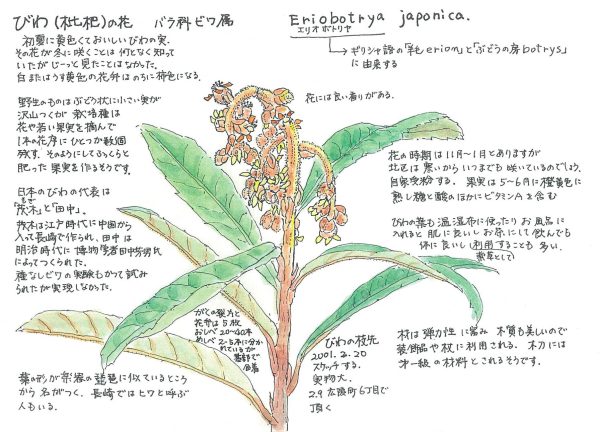 びわ(枇杷)の花 バラ科ビワ属
初夏に黄色くておいしいびわの実、
その花が冬に咲くことは何となく知って
いたがじーっと見たことはなかった。
白またはうす黄色の花弁はのちに褐色になる。
野生のものはぶどう状に小さい実が
沢山つくが栽培種は
花や若い果実を摘んで
1本の花序にひとつか数個
残す。そのようにしてふっくらと
肥った果実を作るそうです。
日本のびわの代表は
「茂木」と「田中」。
もぎ
茂木は江戸時代に中国から
入って長崎で作られ、田中は
明治時代に博物学者田中芳男氏
によってつくられた。
種なしビワの実験もかつて試み
られたが実現しなかった。
葉の形が楽器の琵琶に似ているところ
から名がつく。長崎ではヒワと呼ぶ
人もいる。
がくの裂片と
花弁は5枚
おしべ20~40本
めしべ2~5本に分か
れているが
基部で
合着
Eriobotrya japonica.
エリオボトリヤ
ギリシャ語の「羊毛erion」と「ぶどうの房botrys」
に由来する
花には良い香りがある。
花の時期は11月~1月とありますが
北区は寒いからいつまでも咲いているのでしょう。
自家受粉する。果実は5~6月に橙黄色に
熟し糖と酸のほかにビタミンAを含む
びわの葉も温湿布に使ったりお風呂に
入れると肌に良いしお茶にして飲んでも
体に良いし利用することも多い。
薬草として
びわの枝先
2001.2.20
スケッチする。
実物大。
2.9 広陵町6丁目で
頂く
材は弾力性に富み木質も美しいので
装飾品や杖に利用される。木刀には
第一級の材料とされるそうです。